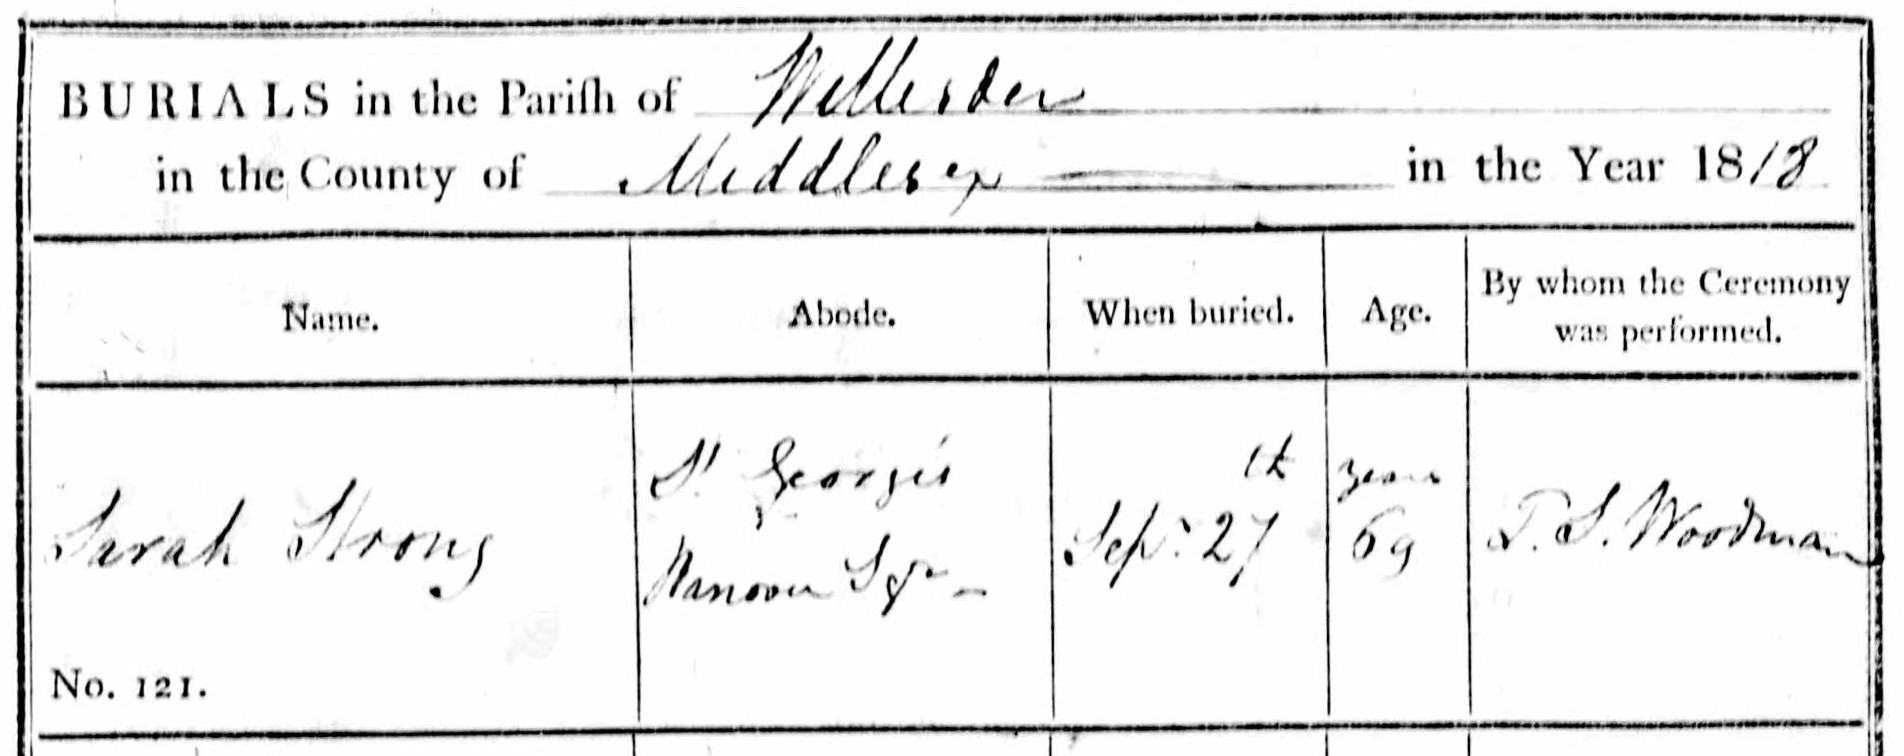 BURIALS in the Pariſh of Willesden
in the County of Middlesex in the Year 1818
Name.
Abode.
When buried.
Age.
By whom the Ceremony
was performed.
Sarah Strong
No. 121.
St. George's
Hanover Sqr
Sept: 27th
years
69
T. S. Woodman